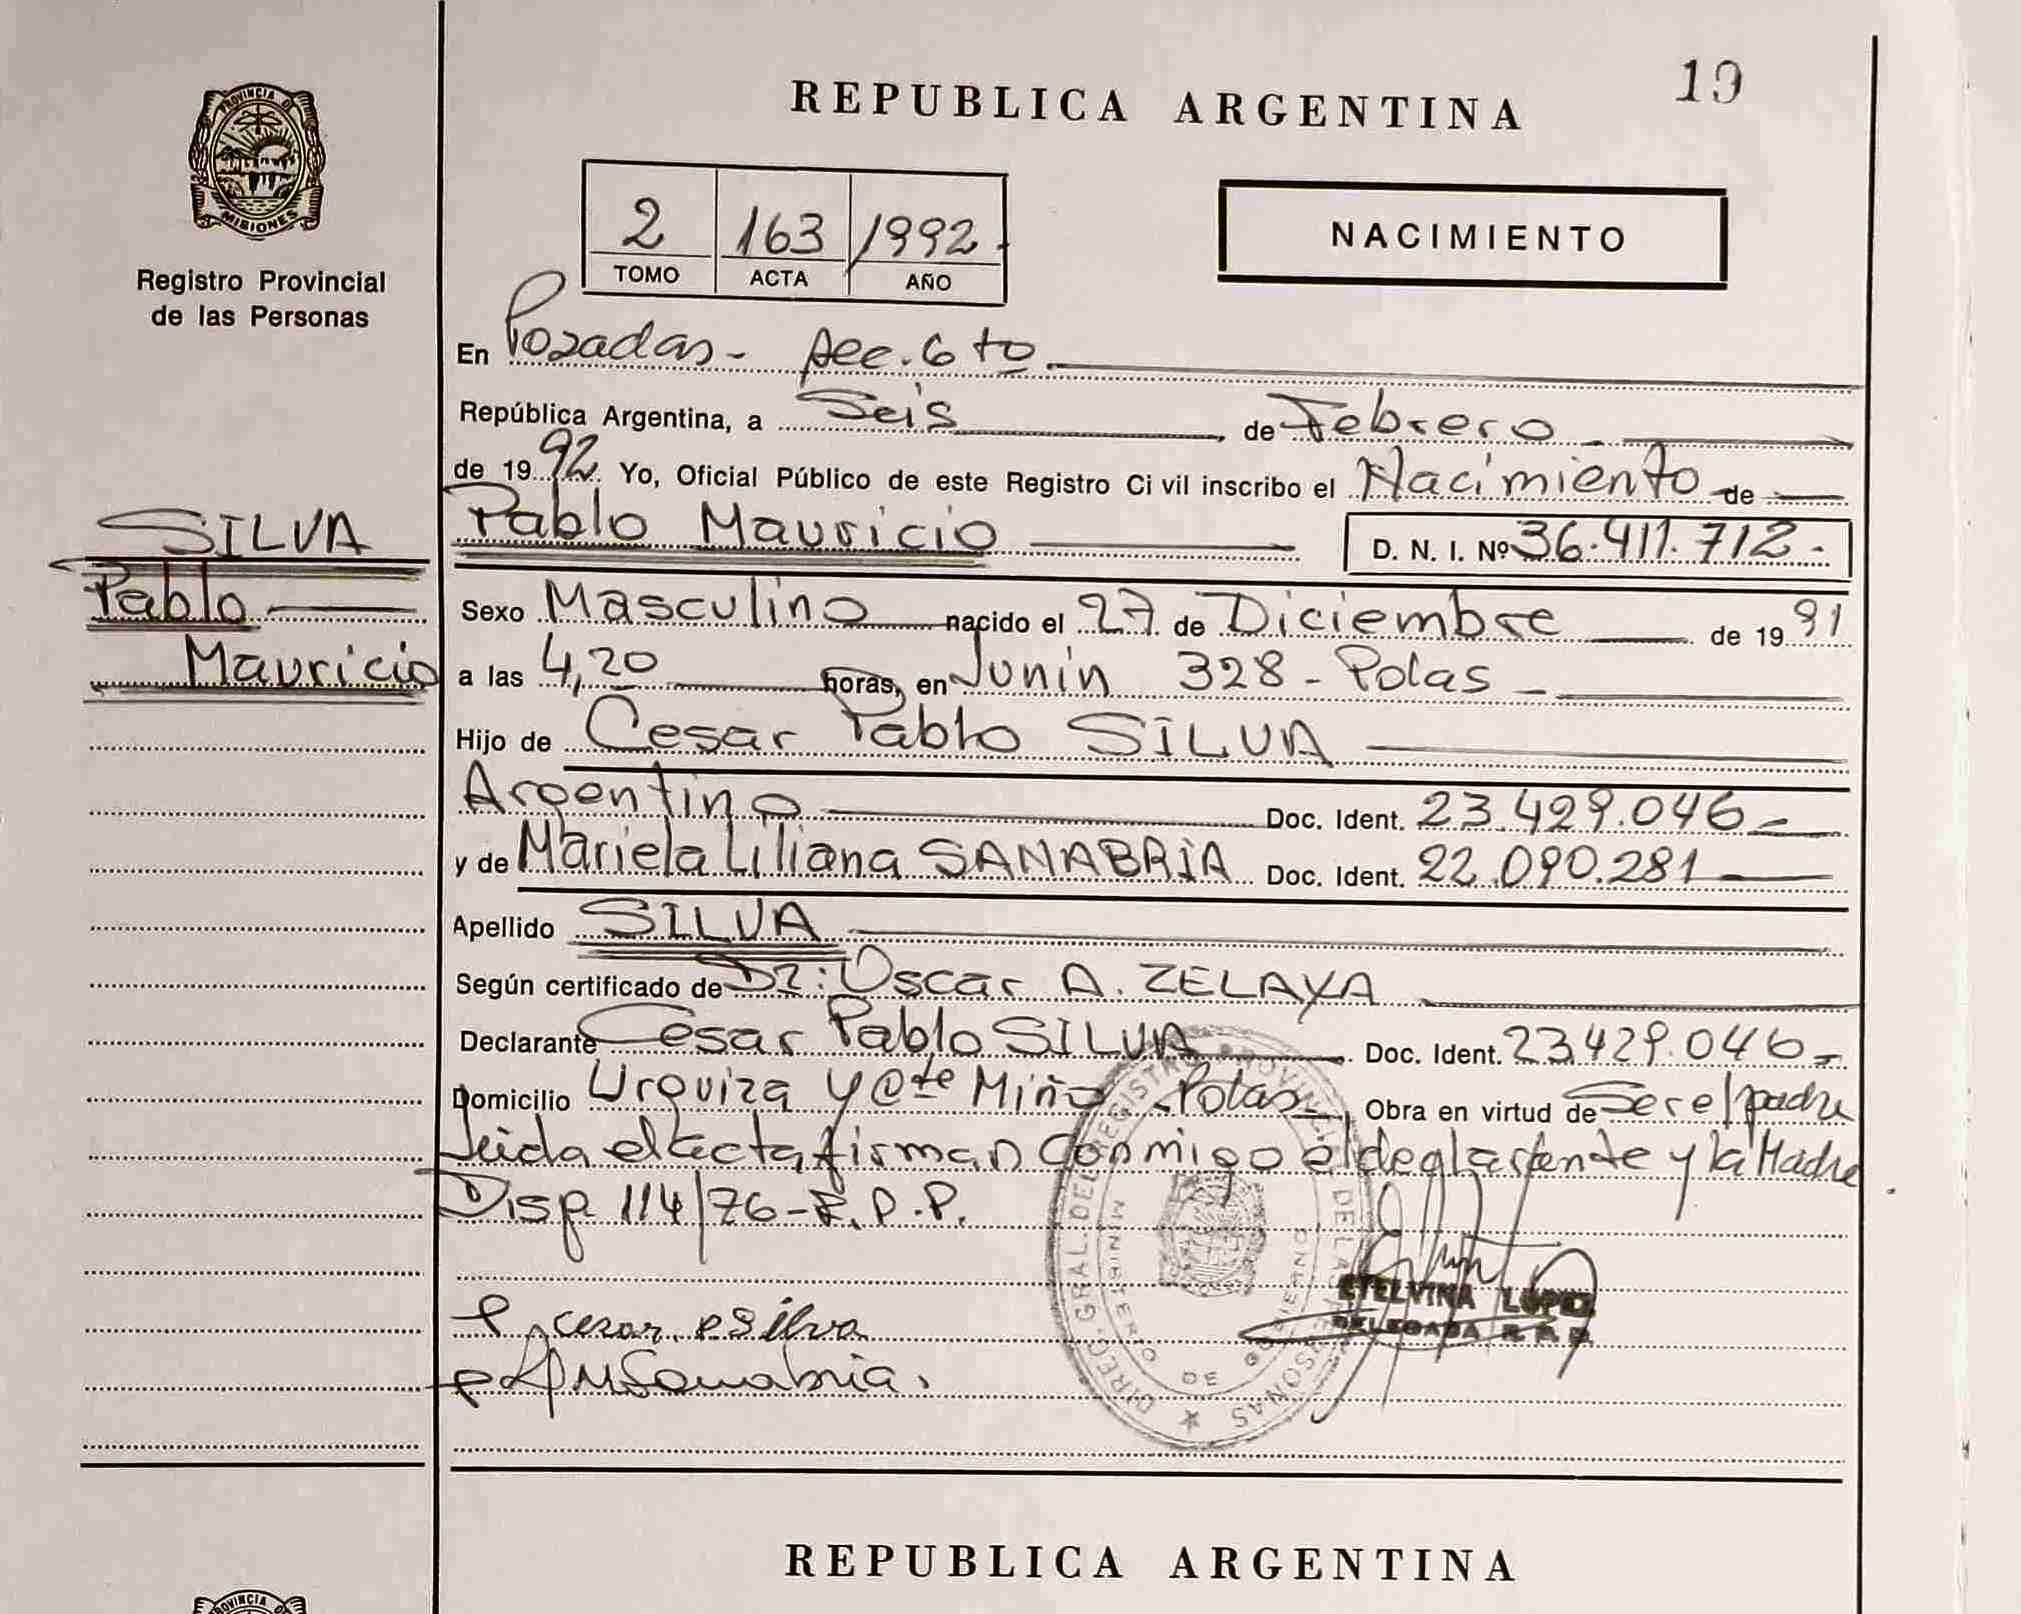 19
REPUBLICA ARGENTINA
PROVINCIA DE
MISIONES
Registro Provincial
de las Personas
2 163 1992.
TOMO ACTA AÑO
NACIMIENTO
En Posadas - Sec. 6 to
República Argentina, a Seis de Febrero
de 1992. Yo, Oficial Público de este Registro Civil inscribo el Nacimiento de
SILVA
Pablo
Mauricio
Pablo Mauricio D. N. I. Nº 36.411.712.
Sexo Masculino nacido el 27 de Diciembre de 1991
a las 4,20 horas, en Junín 328 - Pdas
Hijo de Cesar Pablo SILVA
Argentino Doc. Ident. 23.429.046
y de Mariela Liliana SANABRIA Doc. Ident. 22.090.281
Apellido SILVA
Según certificado de Dr: Oscar A. ZELAYA
Declarante Cesar Pablo SILVA Doc. Ident. 23.429.046
Domicilio Urquiza y Cte Miño - Pdas Obra en virtud de Ser el padre
Leida el acta firman conmigo el declarante y la Madre
Disp. 114/76 - R.P.P.
ETELVINA LOPEZ
DELEGADA R. P. P.
DIREC. GRAL. DEL REGISTRO PROVINCIAL DE LAS PERSONAS
MINISTERIO DE GOBIERNO
Cesar P Silva
M Sanabria
REPUBLICA ARGENTINA
PROVINCIA DE